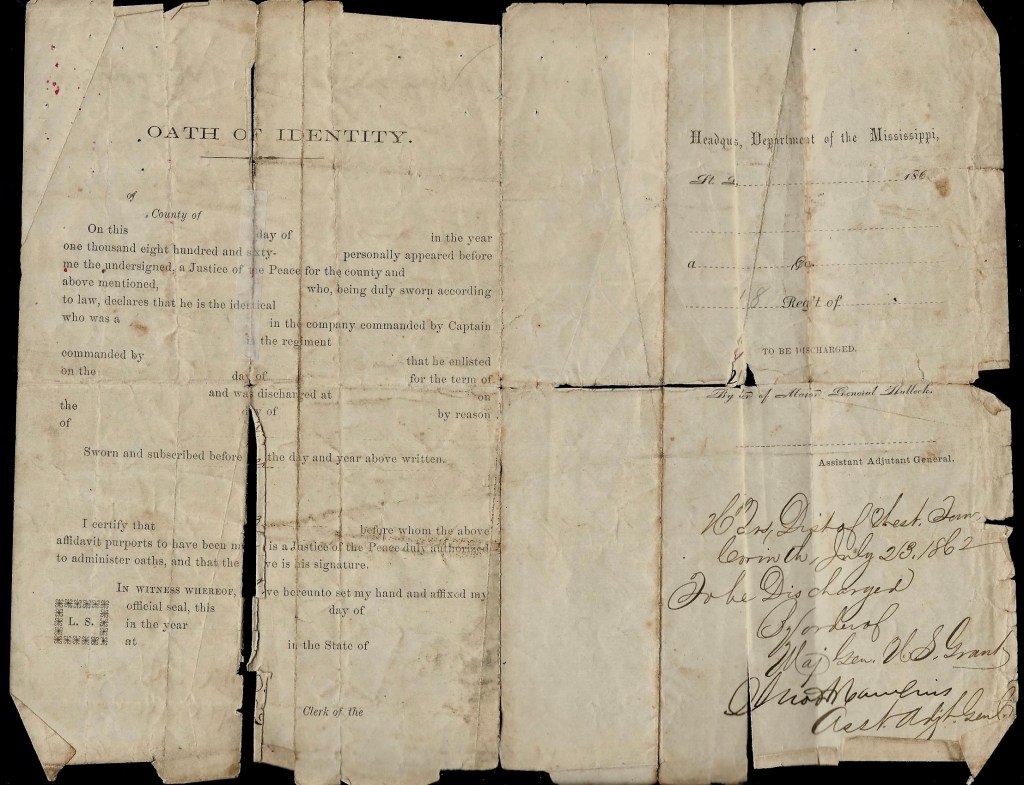 OATH OF IDENTITY.
of
County of
On this day of in the year
one thousand eight hundred and sixty- personally appeared before
me the undersigned, a Justice of the Peace for the county and
above mentioned, who, being duly sworn according
to law, declares that he is the identical
who was a in the company commanded by Captain
in the regiment
commanded by that he enlisted
on the day of for the term of
and was discharged at on
the day of by reason
of
Sworn and subscribed before the day and year above written.
I certify that before whom the above
affidavit purports to have been is a Justice of the Peace duly authorized
to administer oaths, and that the is his signature.
IN WITNESS WHEREOF, hereunto set my hand and affixed my
official seal, this day of
L. S.
in the year
at in the State of
Clerk of the
Headqrs, Department of the Mississippi,
St. L 186
a Co.
18 Reg't of
TO BE DISCHARGED.
By of Major General Halleck.
Assistant Adjutant General.
Hd Qrs, Dist of West. Tenn.
Corinth, July 23. 1862
To be Discharged
By order of
Maj Gen. U S. Grant
Jno A Rawlins
Asst. Adjt. Genl